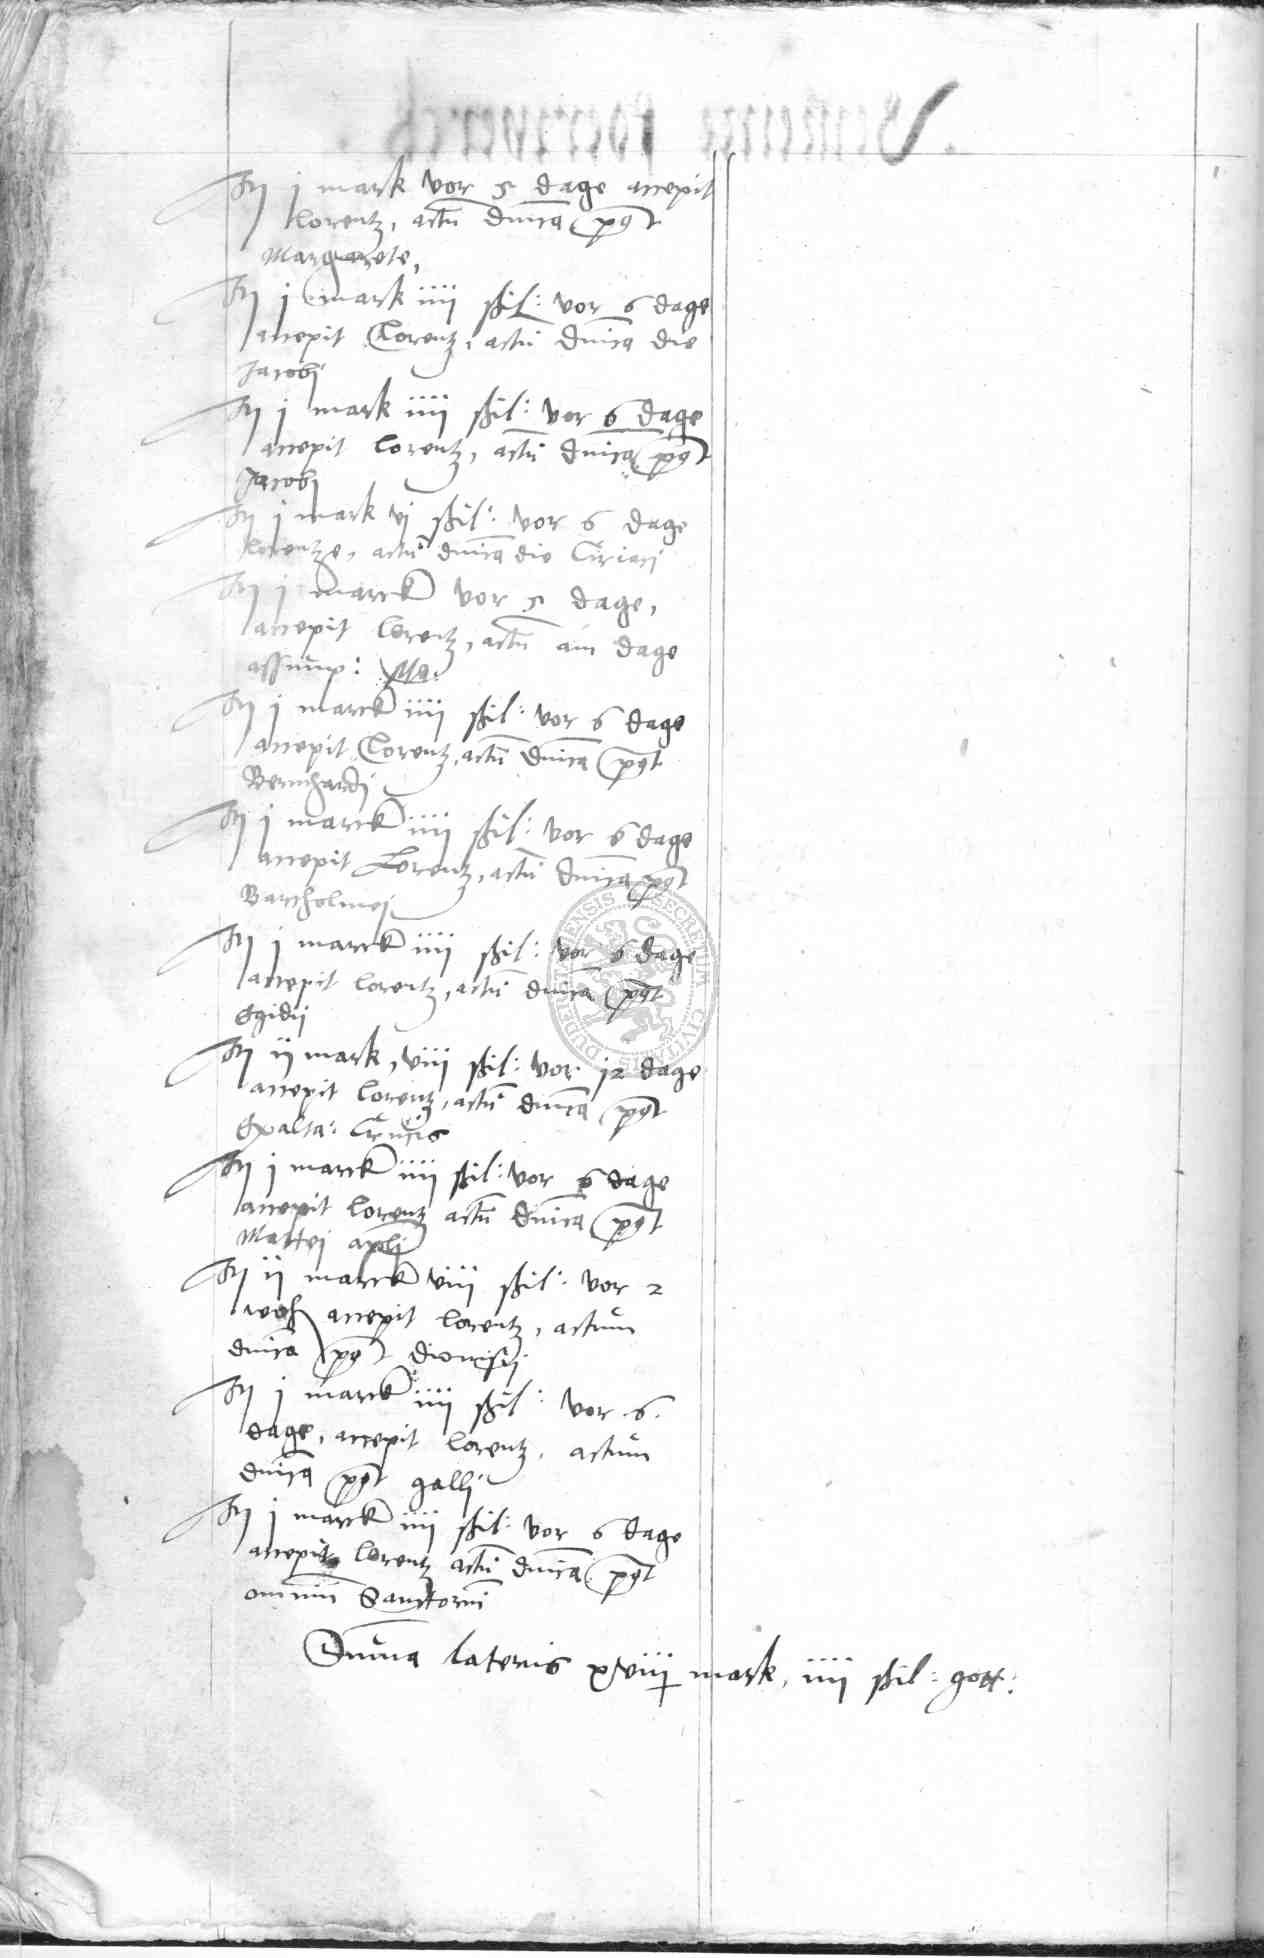 It j mark vor 5 dage accepit
Lorentz, actu dnica post
Margarete,
It j mark iiij ßil: vor 6 dage
accepit Lorentz, actu dnica die
Jacobj
It j mark iiij ßil: vor 6 dage
accepit lorentz, actu dnica post
Jacobj
It j mark vj ßil: vor 6 dage
lorentze, actu dnica die Ciriaci
It j marck vor 5 dage,
accepit lorentz, actu am dage
assump: Ma:
It j marck iiij ßil: vor 6 dage
accepit Lorentz, actu dnica post
Bernhardj
It j marck iiij ßil: vor 6 dage
accepit Lorentz, actu dnica post
Bartholmej
It j marck iiij ßil: vor 6 dage
accepit lorentz, actu dnica post
Egidij
It ij mark, viij ßil: vor 12 dage
accepit lorentz, actu dnica post
Exalta: Crucis
It j marck iiij ßil: vor 6 dage
accepit lorentz actu dnica post
Mattej apli
It ij marck viij ßil: vor 2
woch accepit lorentz, actum
dnica post dionisij
It j marck iiij ßil: vor .6.
dage, accepit lorentz, actum
dnica post galli
It j marck iiij ßil: vor 6 dage
accepit lorentz actu dnica post
omnium Sanctorum
Suma lateris xviij mark, iiij ßil: gott:
SECRETUM CIVITATIS DUDERSTATENSIS